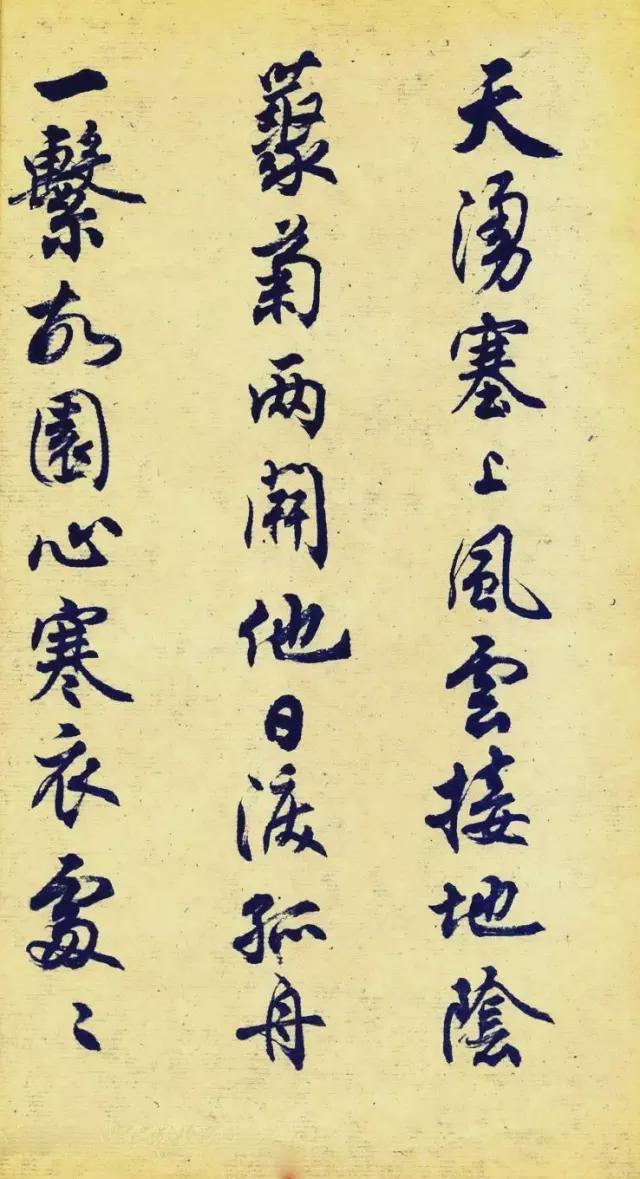 天湧塞上風雲接地陰
蘂菊两開他日淚孤舟
一繫故園心寒衣處〻